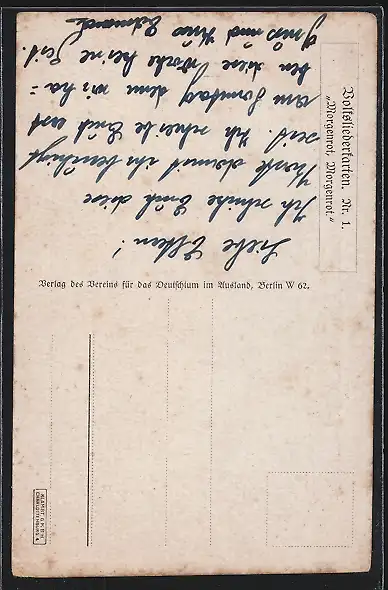 Liebe Eltern!
Ich schicke Euch diese
Karte damit ihr beruhigt
seid. Ich schreibe Euch erst
am Sonntag denn wir ha=
ben diese Woche keine Zeit.
Gruß und Kuss
Volksliederkarten. Nr. 1.
„Morgenrot, Morgenrot.“
Verlag des Vereins für das Deutschtum im Ausland, Berlin W 62.
KLARDT G.M.B.H.
CHARLOTTENBURG 4.